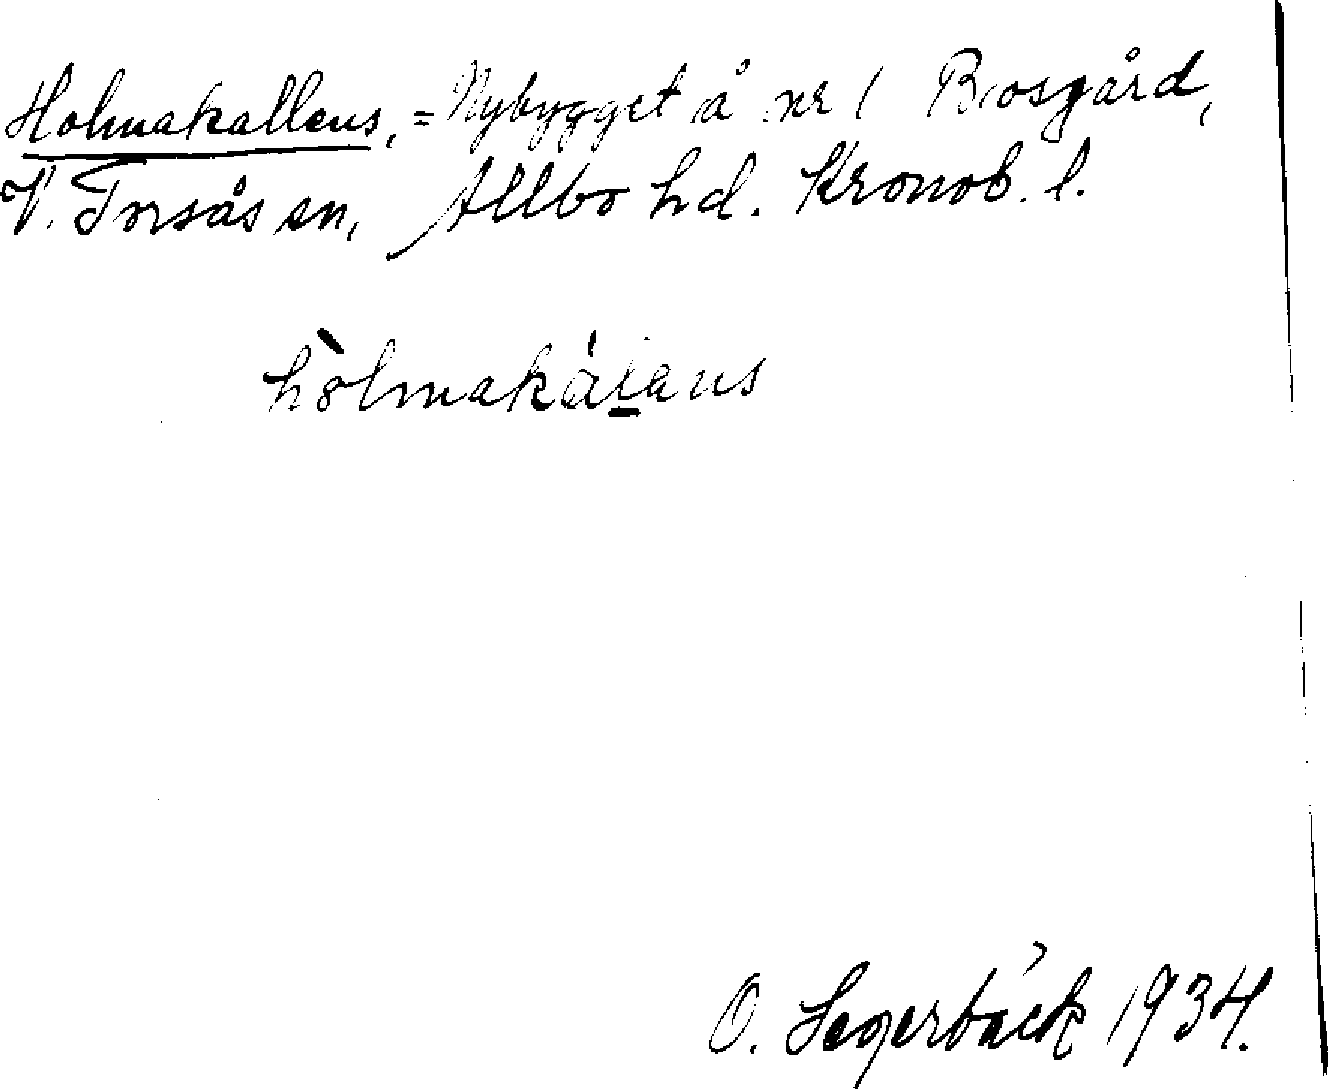 Holmakallens, = Nybygget å nr 1 Bosgård,
V. Torsås sn, Allbo hd. Kronob. l.
O. Segerbäck 1934.